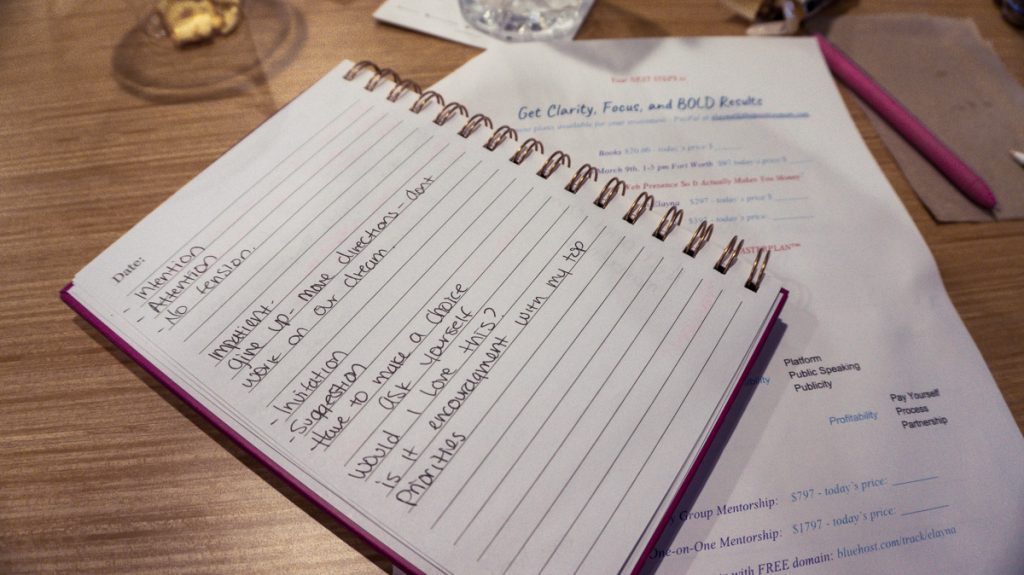 Date:
- Intention
- Attention
- No tension.
Impatient -
Give up - more directions - dont
work on our dream
- Invitation
- Suggestion
Have to make a choice
ask yourself
Would I love this?
is it encouragment with my top
Priorities
Your NEXT STEPS to
Get Clarity, Focus, and BOLD Results
plans available for your investment - PayPal at
Books $20.00 - today's price $
March 9th, 1-5 pm Fort Worth $97 today's price $
Web Presence So It Actually Makes You Money
Elayna $297 - today's price $
$397 - today's price:
Platform
Public Speaking
Publicity
Profitability
Pay Yourself
Process
Partnership
Group Mentorship: $797 - today's price:
One-on-One Mentorship: $1797 - today's price:
with FREE domain: bluehost.com/track/elayna